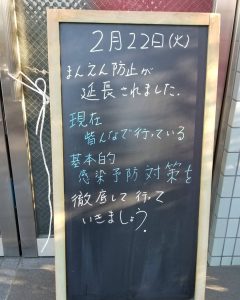 2月22日(火)
まんえん防止が
延長されました.
現在
皆んなで行っている
基本的
感染予防対策を
徹底して行って
いきましょう.